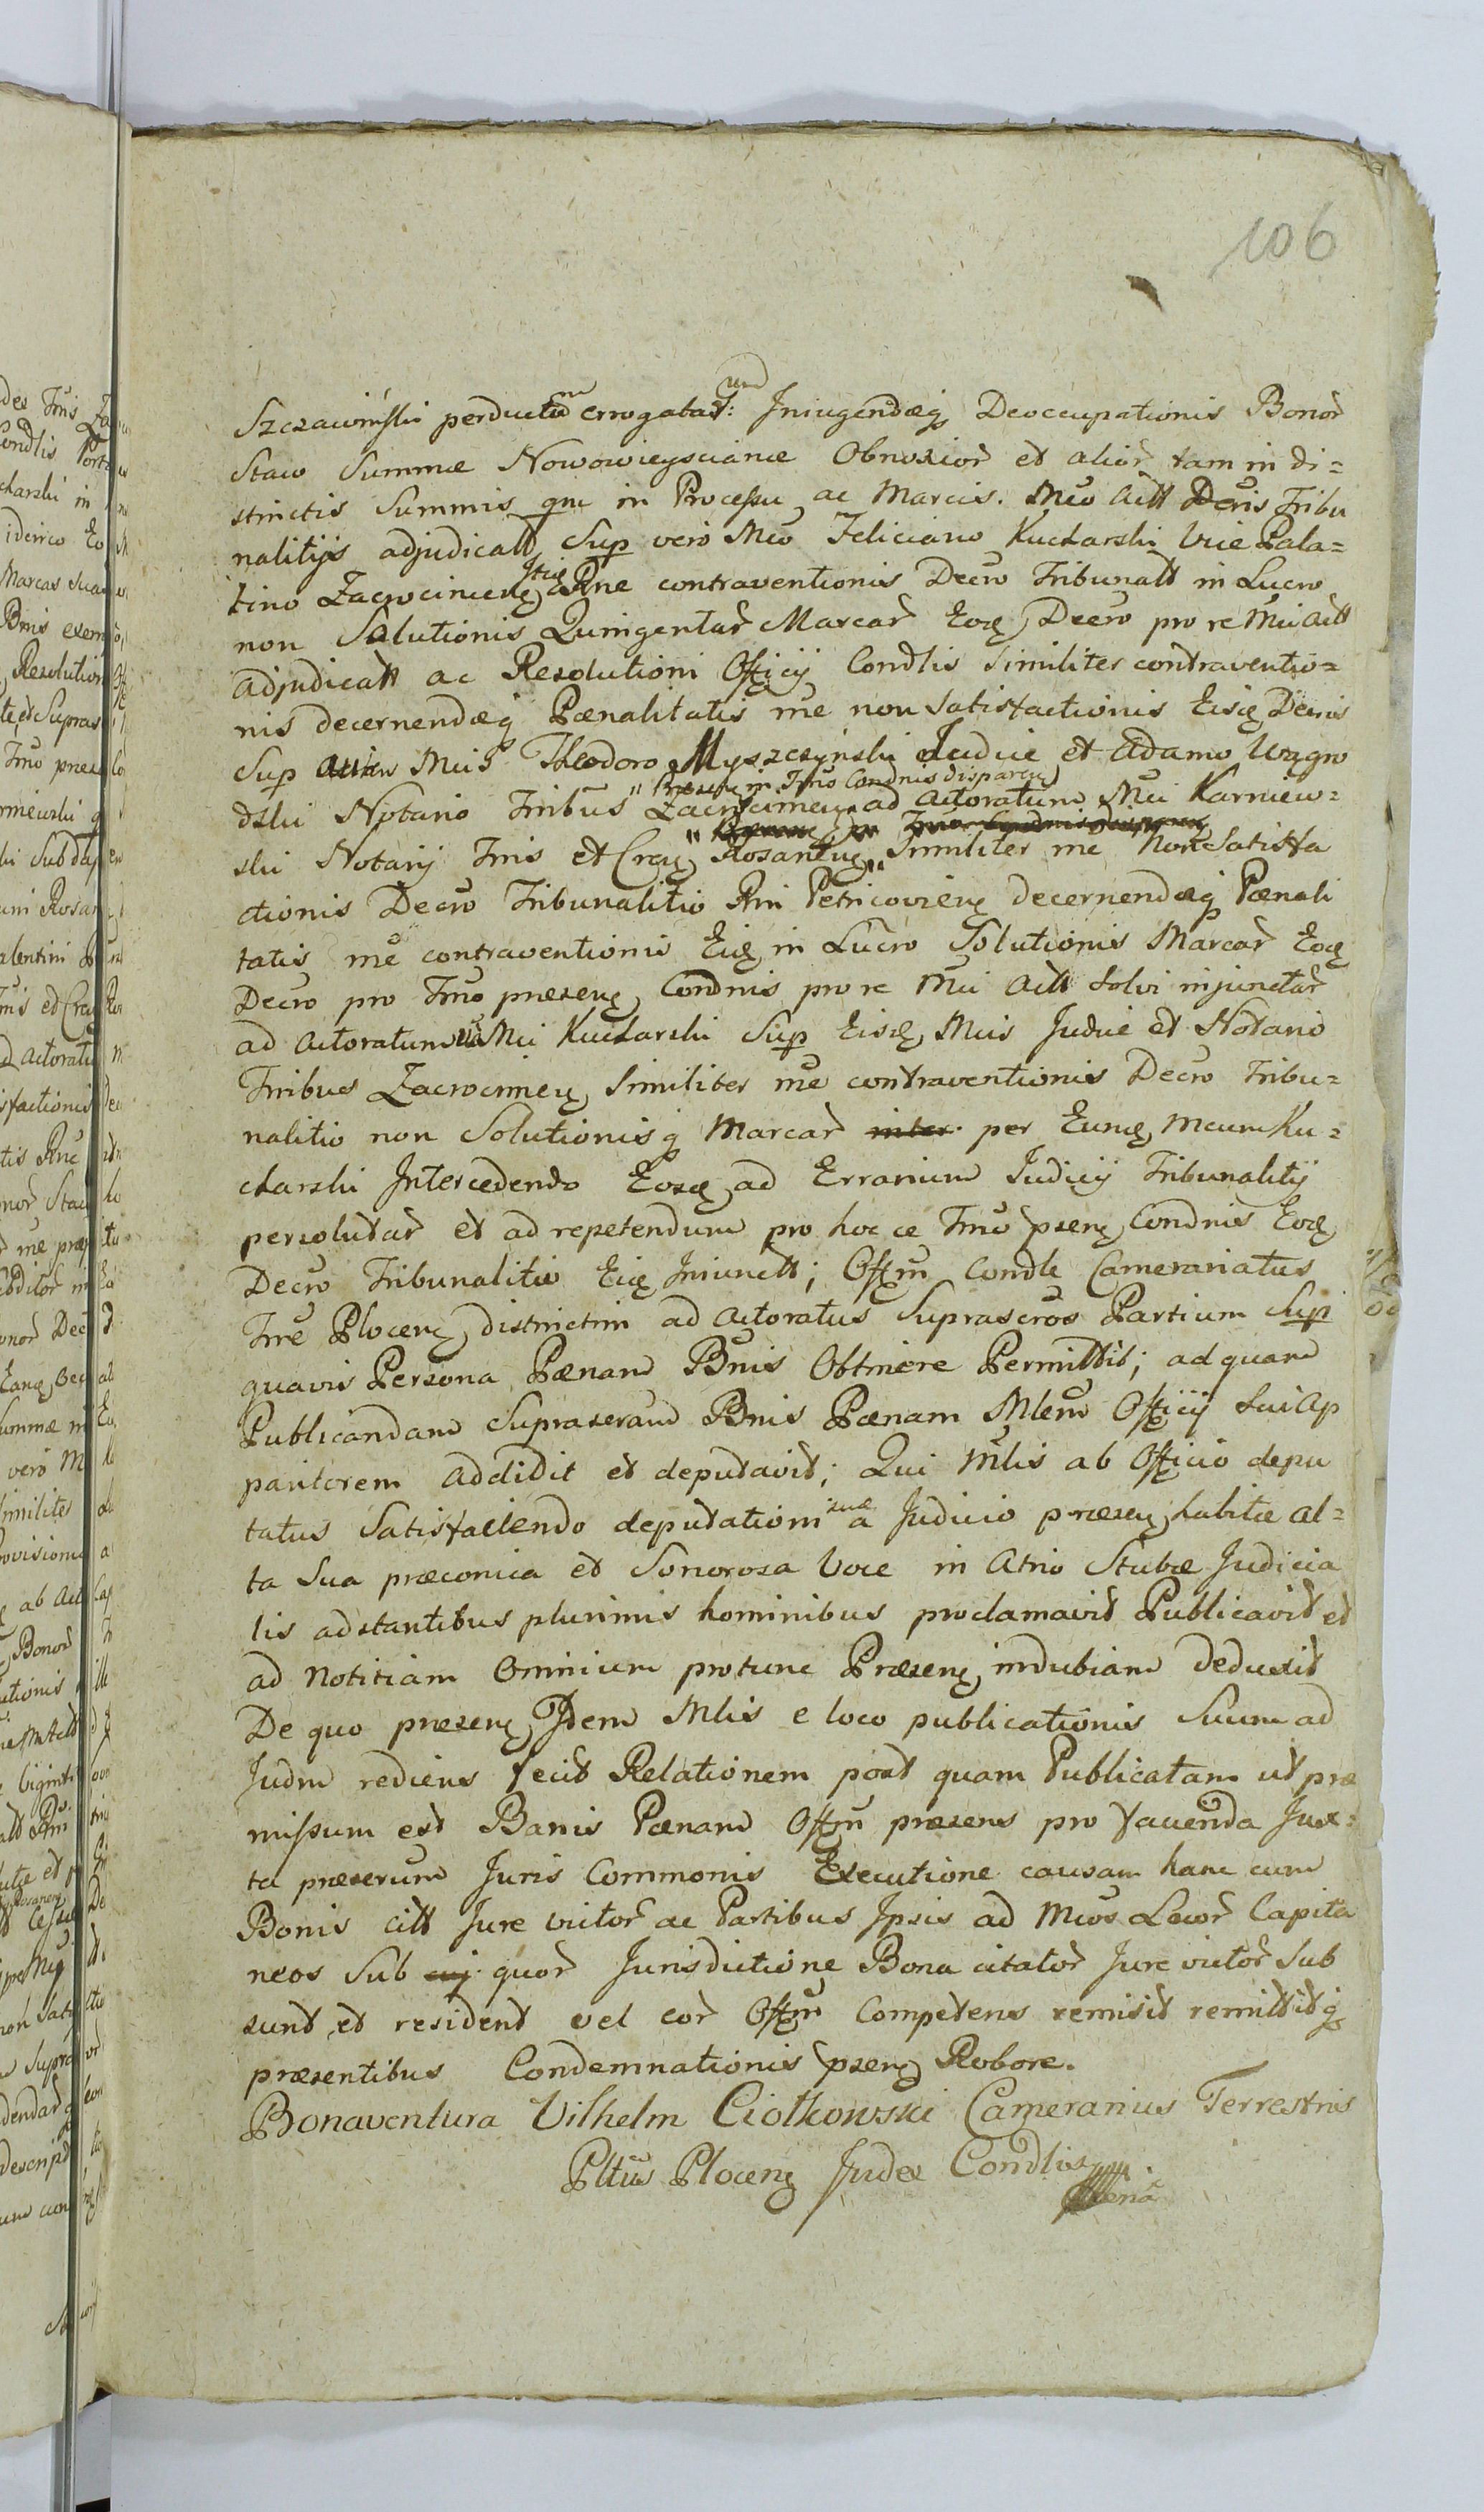 106
Szczawinski perductum errogatarum: Iniugendæq Deoccupationis Bonor
Staw Summæ Nowowieysciance Obnoxior et alior tam in di=
stinctis Summis qm in Processu ac Marcis. Mco Actt Decris Tribu
nalitijs adjudicatt Sup vero Mco Feliciano Kucharski Vice Pala=
tino Zacrocimen Itiq Rne contraventionis Decro Tribunatt in Lucro
non Solutionis Quingentar Marcar Eoq Decro pro re Mci Actt
adjudicatt ac Resolutioni Officij Condlis similiter contraventio=
nis decernendæq Pænalitatis me non Satisfactionis Eisq Decris
Sup Mcis Theodoro Myszczynski Judice et Adamo Uzgro
dski Notario Tribus Zacrocimen ad Actoratum Mci Karniew=
" Præsen in Tmo Condnis disparen
ski Notarij Tris et Cren Rosanen Similiter me Non Satisfa
ctionis Decro Tribunalitio Rni Petricovien decernendæq Pænali
tatis me contraventionis Eiq in Lucro Solutionis Marcar Eoq
Decro pro Tmo præsen Condnis pro re Mci Actt Solvi injunctar
ad Actoratum Mci Kucharski Sup Eisq Mcis Judice et Notario
Tribus Zacrocimen Similiter me contraventionis Decro Tribu=
nalitio non Solutionisq Marcar inter per Eunq Mcum Ku=
charski Intercedendo Eosq ad Errarium Judicij Tribunalitij
persolutar et ad repetendum pro hoc ce Tmo psen Condnis Eoq
Decro Tribunalitio Eiq Iniunctt; Offm Condle Camerariatus
Tre Plocen districtim ad Actoratus Suprascros Partium Sup
quavis Persona Pænam Bnis Obtinere Permittit; ad quam
Publicandam Suprascram Bnis Pænam Mlem Officij Sui Ap
paritorem addidit et deputavit; Qui Mlis ab Officio depu
tatus Satisfaciendo deputationi suæ a Judicio præsen habitæ al=
ta Sua præconica et Sonorosa Voce in Atrio Stubæ Judicia
lis adstantibus plurimis hominibus proclamavit Publicavit et
ad Notitiam Omnium protunc Præsen indubiam deduxit
De quo præsen Idem Mlis e loco publicationis Suum ad
Judm rediens fecit Relationem post quam Publicatam ut præ
missum est Banis Pænam Offm præsens pro facienda Jux=
ta præscrum Juris Commonis Executione causam hanc cum
Bonis citt Jure victor ac Partibus Ipsis ad Mcos Locor Capita
neos Sub quor Jurisdictione Bona citator Jure victor Sub
sunt et resident vel eor Offm Competens remisit remittitq
præsentibus Condemnationis psen Robore.
Bonaventura Vilhelm Ciołkowski Camerarius Terrestris
Pltus Plocen Judex Condlis